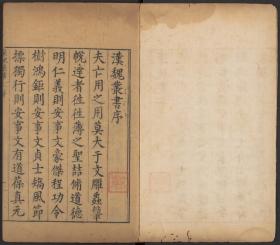 漢魏叢書序
夫亡用之用莫大于文雕蟲篆
帨達者往往薄之聖詰脩道德
明仁義則安事文豪傑程功令
樹鴻鉅則安事文貞士矯風節
標獨行則安事文有道葆真元